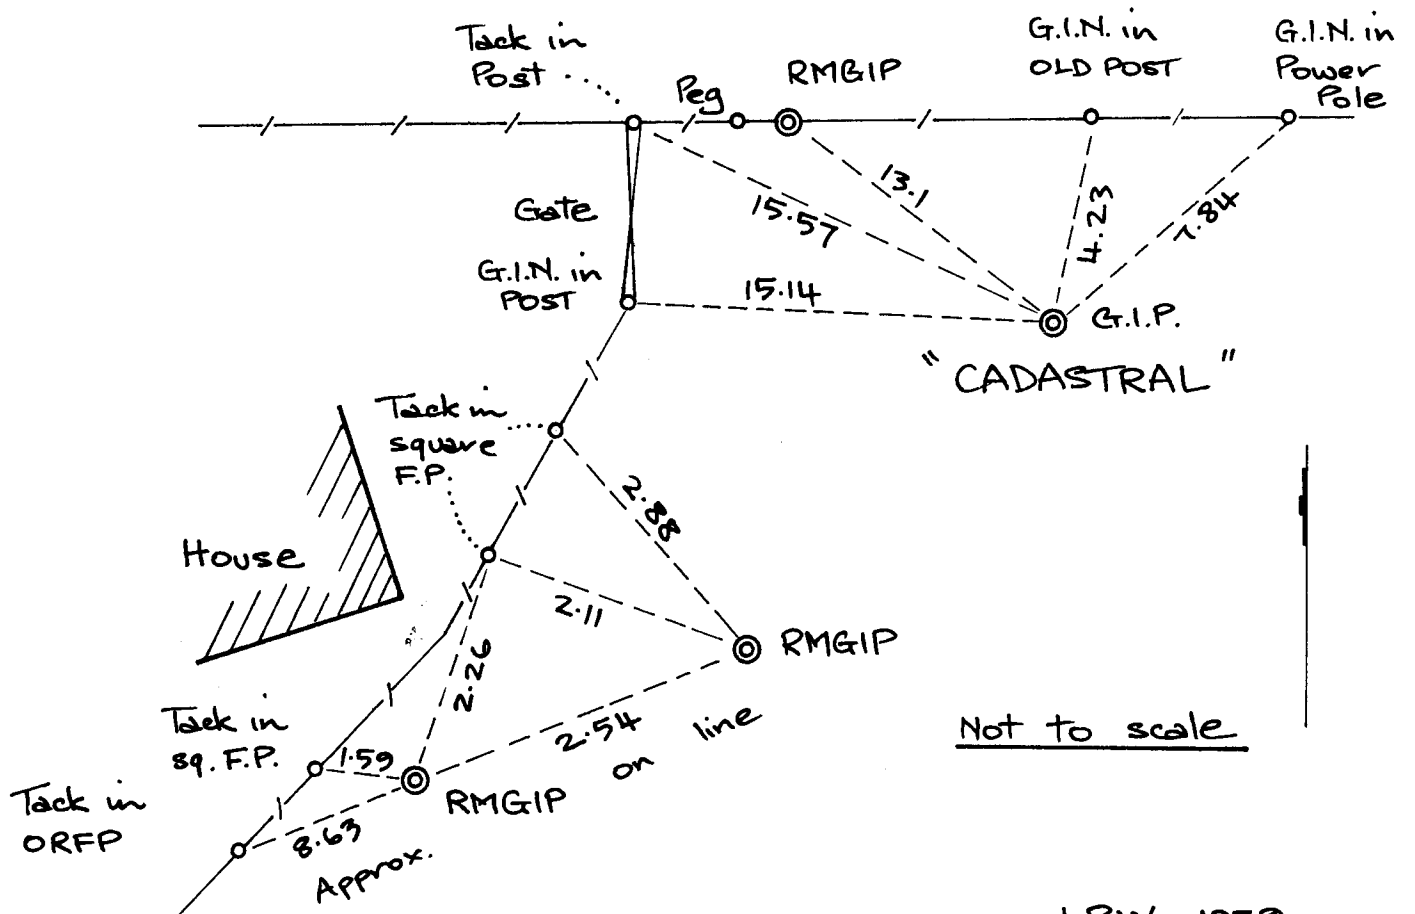 Tack in
Post
Peg
RMGIP
G.I.N. in
OLD POST
G.I.N. in
Power
Pole
Gate
G.I.N. in
POST
15.57
13.1
4.23
7.84
15.14
G.I.P.
"CADASTRAL"
Tack in
square
F.P.
House
2.88
2.11
2.26
RMGIP
2.54
on line
Not to scale
Tack in
sq. F.P.
1.59
RMGIP
Tack in
ORFP
8.63
Approx.